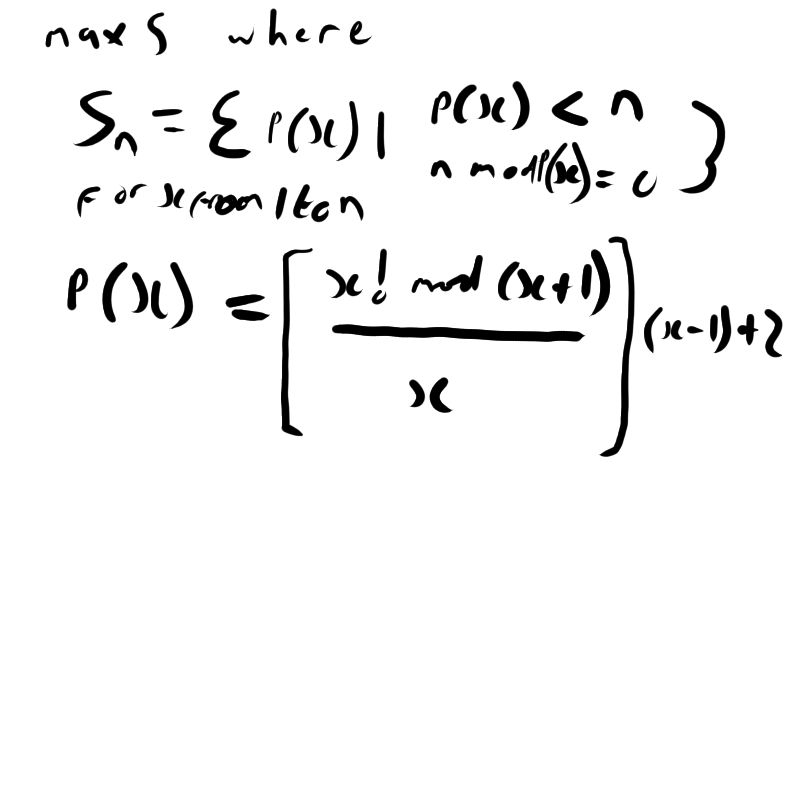 max S where
Sₙ = { P(x) | P(x) < n
n mod P(x) = 0 }
For x from 1 to n
P(x) = [ x! mod (x+1) / x ] (x-1)+2